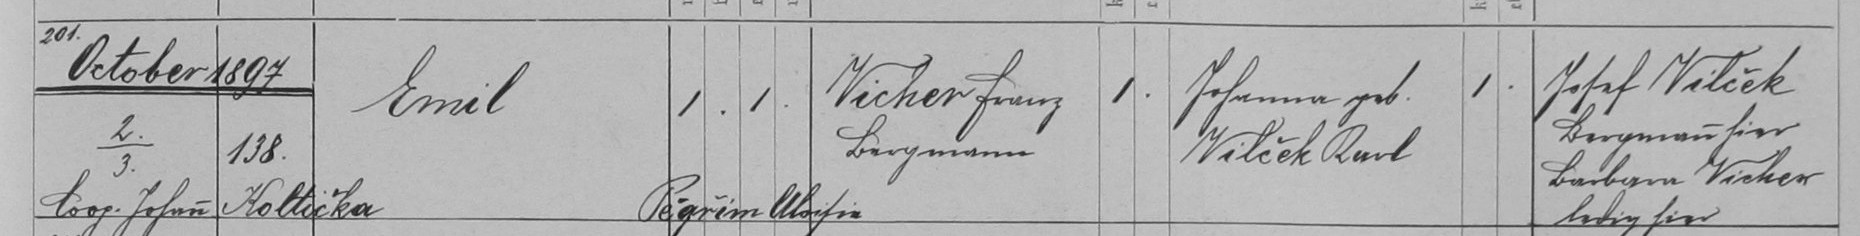 201.
October 1897
2./3.
138.
Emil
1 . 1 .
Vicher Franz
Bergmann
1 .
Johanna geb.
Vilček Karl
1 .
Josef Vilček
Bergmann̄ hier
Barbara Vicher
ledig hier
Coop. Johan̄ Koltička
Pegřim Aloisia